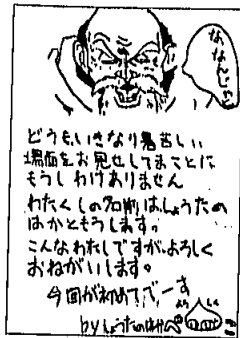 な、なんじゃと
どうも、いきなり暑苦しい
場面をお見せしてまことに
もうしわけありません
わたくしの名前はしょうたの
はかともうします。
こんなわたしですが、よろしく
おねがいします。
今回が初めてでーす
byしょうたのはか